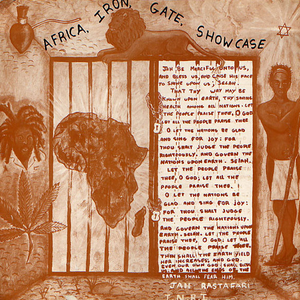 AFRICA, IRON, GATE, SHOWCASE
JAH BE MERCIFUL UNTO US,
AND BLESS US, AND CAUSE HIS FACE
TO SHINE UPON US; SELAH.
THAT THY WAY MAY BE
KNOWN UPON EARTH, THY SAVING
HEALTH AMONG ALL NATIONS. LET
THE PEOPLE PRAISE THEE, O GOD
LET ALL THE PEOPLE PRAISE THEE
O LET THE NATIONS BE GLAD
AND SING FOR JOY: FOR
THOU SHALT JUDGE THE PEOPLE
RIGHTEOUSLY, AND GOVERN THE
NATIONS UPON EARTH. SELAH.
LET THE PEOPLE PRAISE
THEE, O GOD; LET ALL THE
PEOPLE PRAISE THEE.
O LET THE NATIONS BE
GLAD AND SING FOR JOY:
FOR THOU SHALT JUDGE
THE PEOPLE RIGHTEOUSLY,
AND GOVERN THE NATIONS UPON
EARTH. SELAH. LET THE PEOPLE
PRAISE THEE, O GOD; LET ALL
THE PEOPLE PRAISE THEE.
THEN SHALL THE EARTH YIELD
HER INCREASE; AND GOD,
EVEN OUR OWN GOD SHALL BLESS
US. AND ALL THE ENDS OF THE
EARTH SHALL FEAR HIM.
JAH RASTAFARI
I.N.R.I.